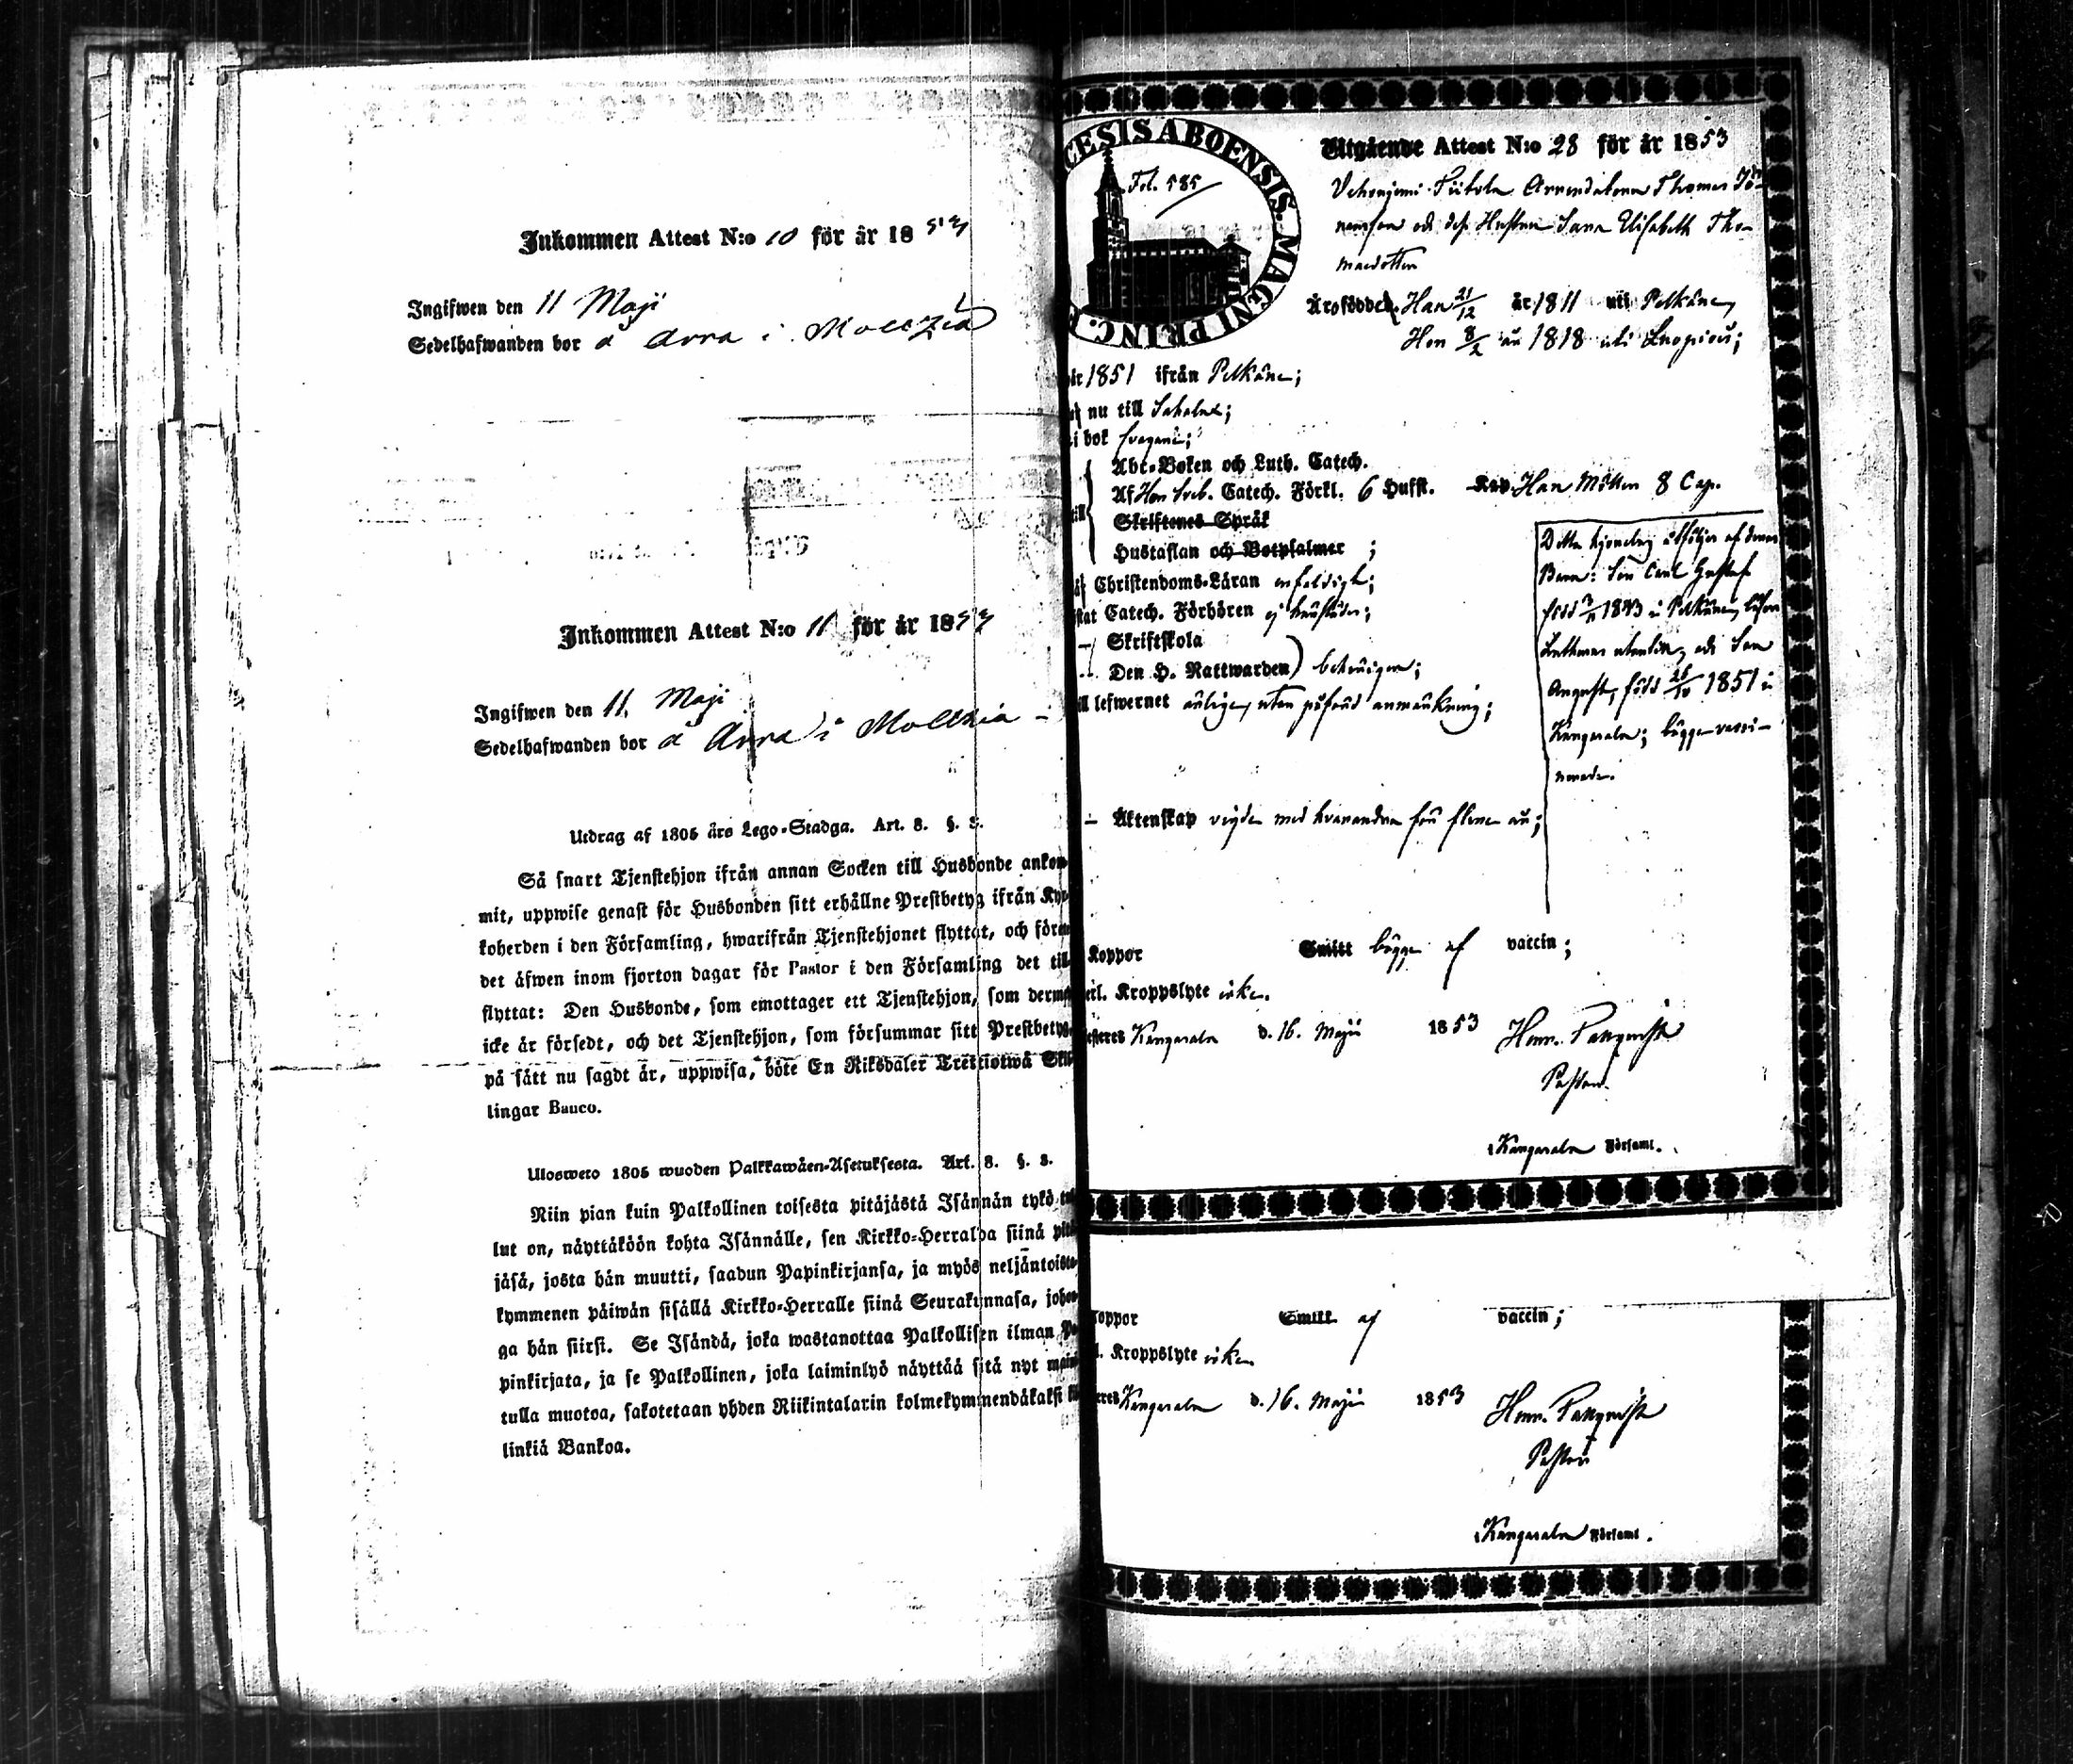 Inkommen Attest N:o 10 för år 1853
Ingifwen den 11 Maji
Sedelhafwanden bor å Arra i
Inkommen Attest N:o 11 för år 1853
Ingifwen den 11 Maji
Sedelhafwanden bor å Arra i
Utdrag af 1805 års Lego-Stadga. Art. 8. §. 3.
Så snart Tjenstehjon ifrån annan Socken till Husbonde ankom-
mit, uppwise genast för Husbonden sitt erhållne Prestbetyg ifrån Kyr-
koherden i den Församling, hwarifrån Tjenstehjonet flyttat, och före
det äfwen inom fjorton dagar för Pastor i den Församling det till-
flyttat: Den Husbonde, som emottager ett Tjenstehjon, som derme
icke är försedt, och det Tjenstehjon, som försummar sitt Prestbetyg
på sätt nu sagdt är, uppwisa, böte En Riksdaler Trettiotwå Skil
lingar Banco.
Ulosweto 1805 wuoden Palkkawäen-Asetuksesta. Art. 8. §. 3.
Niin pian kuin Palkollinen toisesta pitäjästä Isännän tykö tul
lut on, näyttäköön kohta Isännälle, sen Kirkko-Herralda siinä pitä
jäsä, josta hän muutti, saadun Papinkirjansa, ja myös neljäntoista-
kymmenen päiwän sisällä Kirkko-Herralle siinä Seurakunnasa, johon-
ga hän siirsi. Se Isändä, joka wastanottaa Palkollisen ilman Pa
pinkirjata, ja se Palkollinen, joka laiminlyö näyttää sitä nyt main
tulla muotoa, sakotetaan yhden Riikintalarin kolmekymmendäkaksi kil
linkiä Bankoa.
CESIS ABOENSIS. MAGNI PRINC. F
Fol. 585
Utgående Attest N:o 28 för år 1853
Vehonjemi Arrendatorn Thomas
och dess Hustru Elisabeth Tho-
masdotter
Äro födde Han 21/12 år 1811 uti Pelkäne,
Hon 8/2 år 1818 uti
år 1851 ifrån Pelkäne;
nu till Sahalax;
i bok
Abc-Boken och Luth. Catech.
Af Hon Sveb. Catech. Förkl. 6 Hufst. Kap. Han Möller 8 Cap.
Skriftenes Språk
Hustaflan och Botpsalmer ;
Christendoms-Läran enfaldigt;
Catech. Förhören ej
Skriftskola
Den H. Nattwarden) behörigen;
lefwernet ärlige, utan påförd anmärkning;
Detta hjonelag åtföljes af deras
Barn: Son Carl Gustaf
född 1843 i Pelkäne, läser
Lutherus utantill, och Son
August, född 1851 i
Kangasala; bägge vacci-
nerade.
Äktenskap vigde med hvarandra för flere år;
Koppor Smitt bägge af vaccin;
Kroppslyte icke.
Kangasala d. 16. Maji 1853 Henr.
Pastor.
i Kangasala Församl.
Koppor Smitt af vaccin;
Kroppslyte icke
Kangasala d. 16. Maji 1853 Henr.
Pastor
i Kangasala Församl.